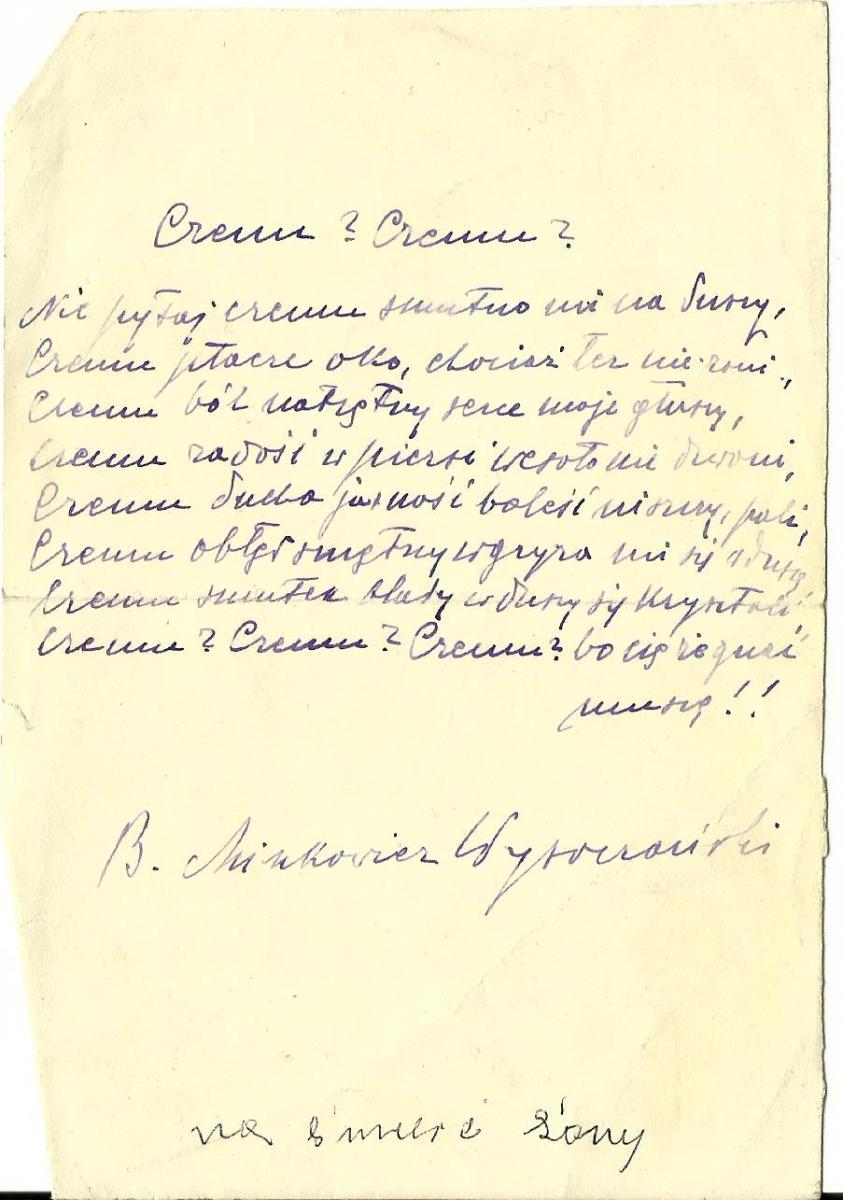 Czemu? Czemu?
Nie pytaj czemu smutno mi na duszy,
Czemu płacze oko, chociaż łez nie roni,
Czemu ból natrętny serce moje głuszy,
Czemu radość w piersi wesoło nie dzwoni,
Czemu ducha jasność boleść niszczy, pali,
Czemu obłęd smętny wgryza mi się w duszę
Czemu smutek blady w duszy się kryształi
Czemu? Czemu? Czemu? bo cię żegnać
muszę!!
B. Minkowicz Wysoczański
na śmierć żony